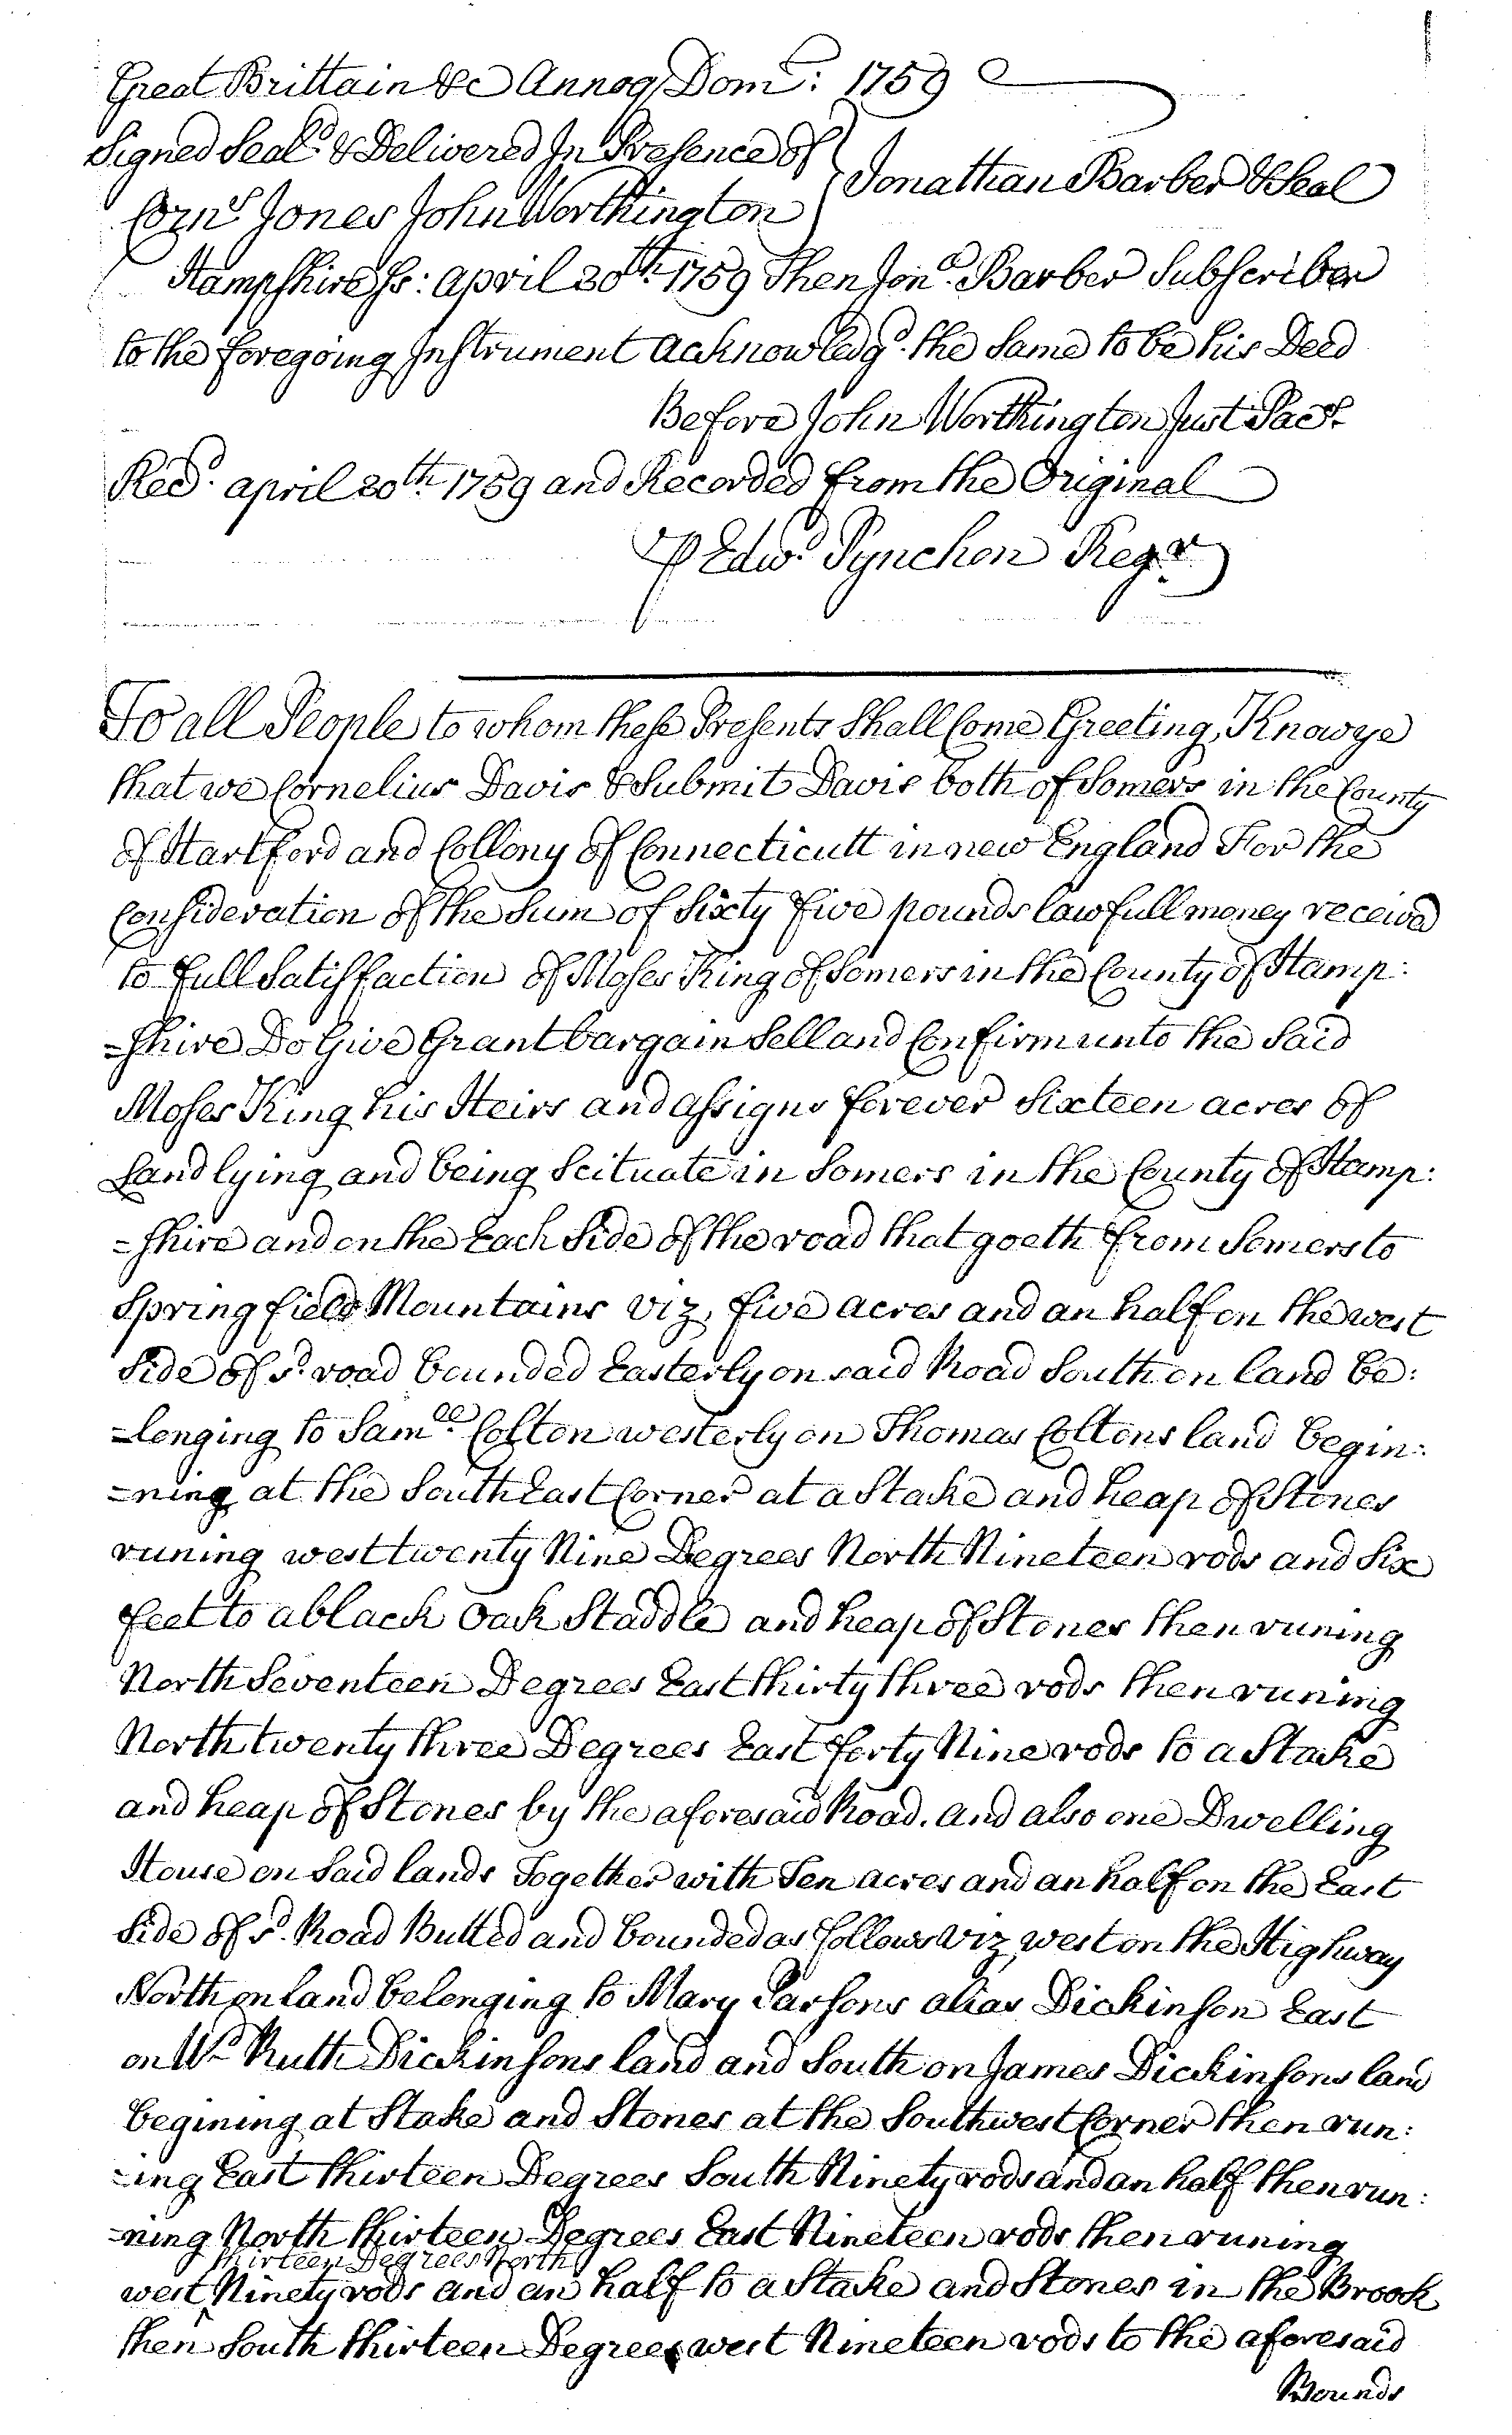 Great Brittain &c Annoq Dom: 1759
Signed Seal.d & Delivered In Presence of
Jonathan Barber & Seal
Corn.s Jones John Worthington
Hampshire Ss: april 20th. 1759 Then Jon.a Barber Subscriber
to the foregoing Instrument acknowledg.d the Same to be his Deed
Before John Worthington Just Pac.s
Rec.d april 20th. 1759 and Recorded from the Original
P Edw.d Pynchon Reg.r
To all People to whom these Presents Shall Come Greeting, Know ye
that we Cornelius Davis & Submit Davis both of Somers in the County
of Hartford and Collony of Connecticutt in new England For the
Consideration of the Sum of Sixty five pounds lawfull money receivd
to full Satisfaction of Moses King of Somers in the County of Hamp:
=shire Do Give Grant bargain Sell and Confirm unto the Said
Moses King his Heirs and assigns forever Sixteen acres of
Land lying and being Scituate in Somers in the County of Hamp:
=shire and on the Each Side of the road that goeth from Somers to
Springfield Mountains viz, five acres and an half on the west
Side of s.d road bounded Easterly on said Road South on land be:
=longing to Sam.ll Colton westerly on Thomas Coltons land begin:
=ning at the South East Corner at a Stake and heap of Stones
runing west twenty Nine Degrees North Nineteen rods and Six
feet to a black Oak Staddle and heap of Stones then runing
North Seventeen Degrees East thirty three rods then runing
North twenty three Degrees East forty Nine rods to a Stake
and heap of Stones by the aforesaid Road. and also one Dwelling
House on Said lands Together with Ten acres and an half on the East
Side of s.d Road Butted and bounded as follows viz, west on the Highway
North on land belonging to Mary Parsons alias Dickinson East
on W.d Ruth Dickinsons land and South on James Dickinsons land
begining at Stake and Stones at the Southwest Corner then run:
=ing East thirteen Degrees South Ninety rods and an half then run:
=ning North thirteen Degrees East Nineteen rods then runing
thirteen Degrees North
west Ninety rods and an half to a Stake and Stones in the Brook
then South thirteen Degrees west Nineteen rods to the aforesaid
Bounds